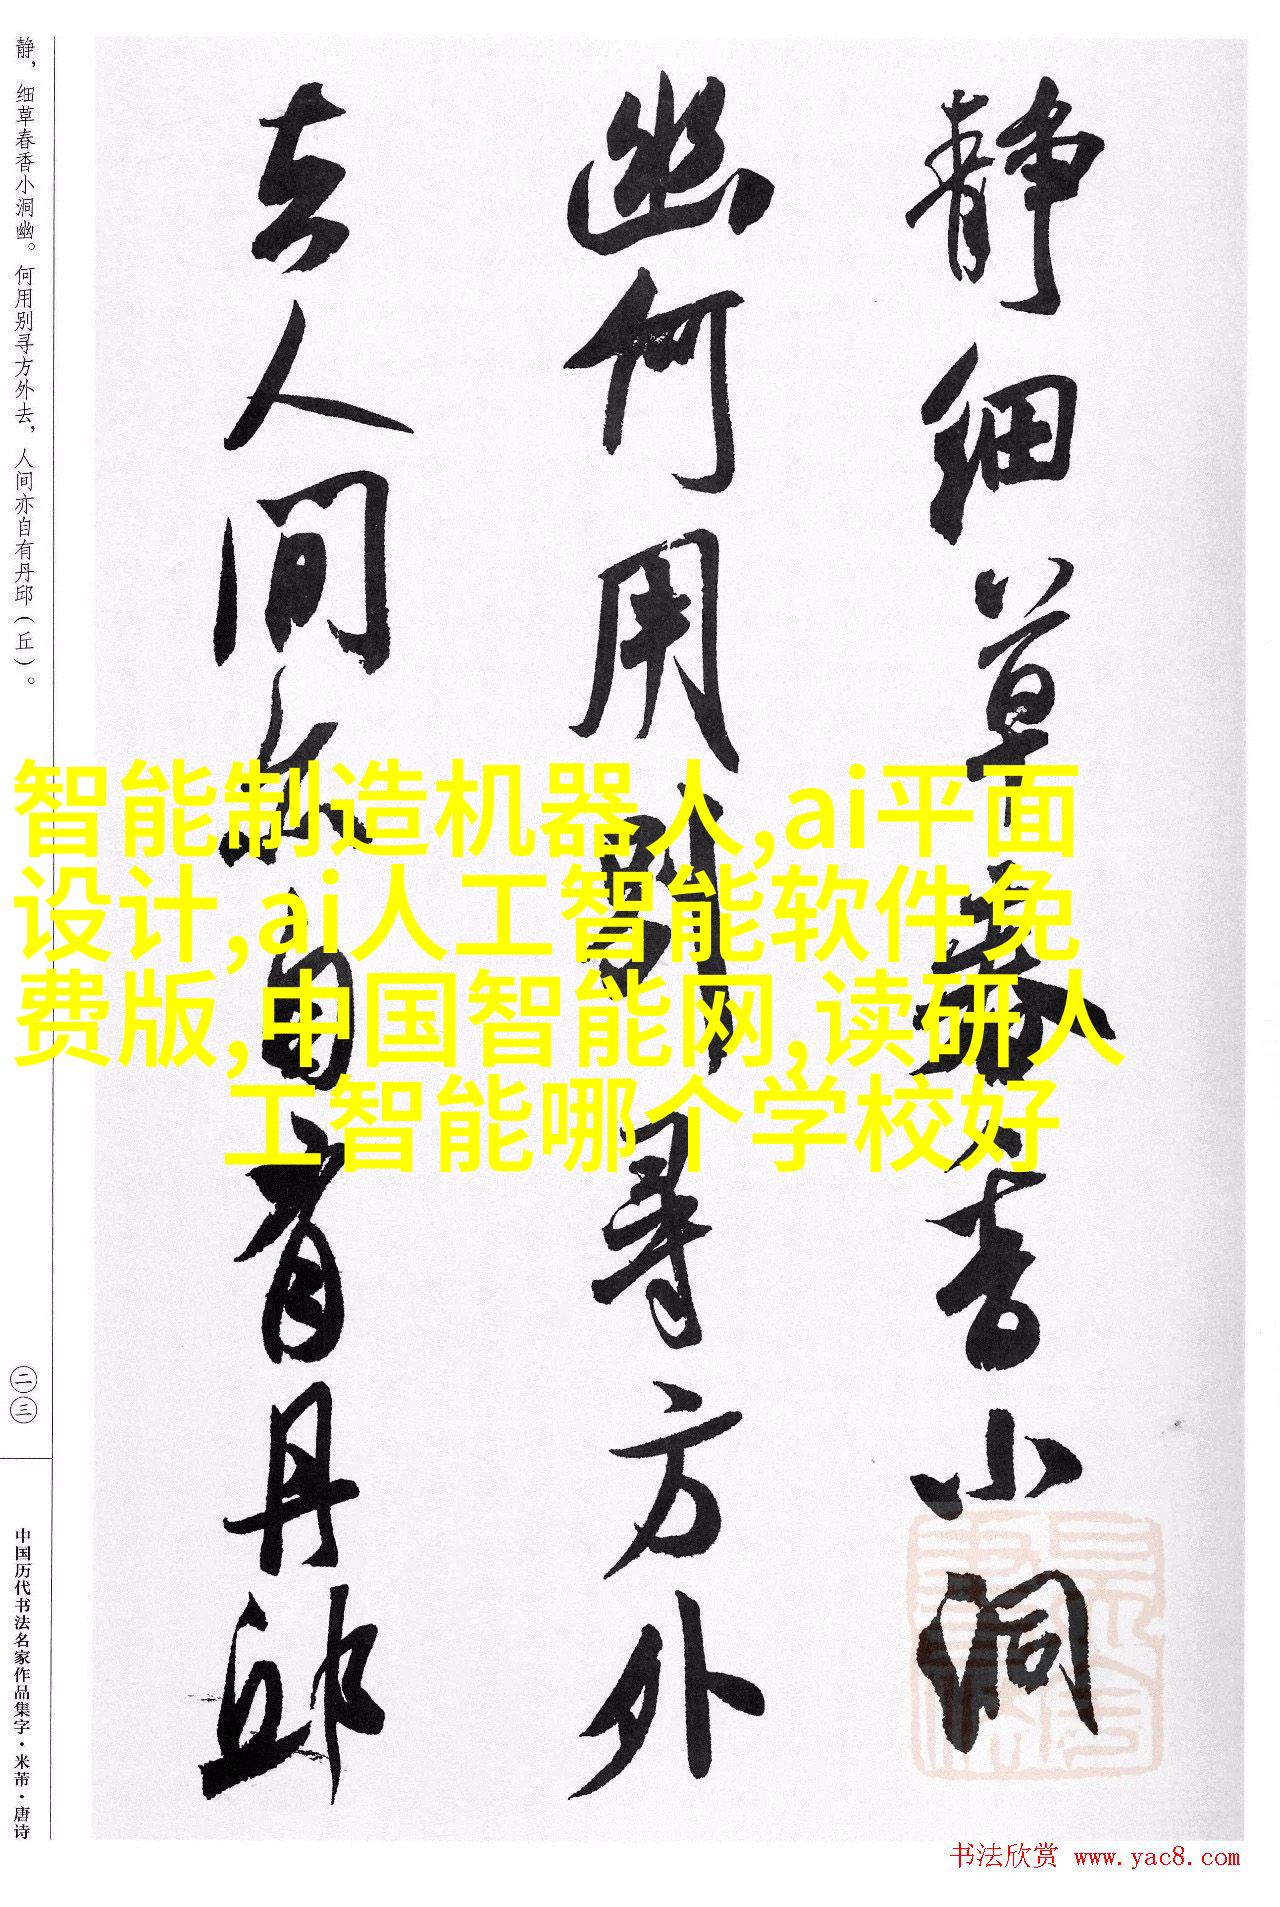 静细草春香小洞
幽何用别寻方外
去人间亦自有丹邱
静，细草春香小洞幽。何用别寻方外去，人间亦自有丹邱（丘）。
二三
中国历代书法名家作品集字·米芾·唐诗
智能制造机器人,ai平面
设计,ai人工智能软件免
费版,中国智能网,读研人
工智能哪个学校好
书法欣赏 www.yac8.com